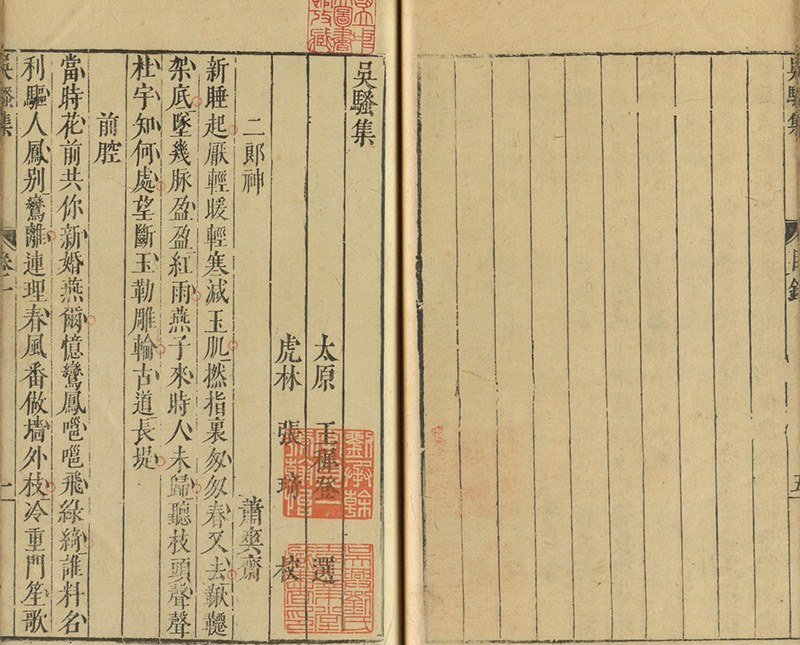 吳騷集
太原 王穉登 選
虎林 張琦 校
二郎神 蕭爽齋
新睡起厭輕暖輕寒減玉肌撚指裏匆匆春又去鞦韆
架底墜幾脉盈盈紅雨燕子來時人未歸聽枝頭聲聲
杜宇知何處望斷玉勒雕輪古道長堤
前腔
當時花前共你新婚燕爾憶鸞鳳嗈嗈飛綠綺誰料名
利驅人鳳別鸞離連理春風番做墻外枝冷重門笙歌
吳騷集 卷一 一